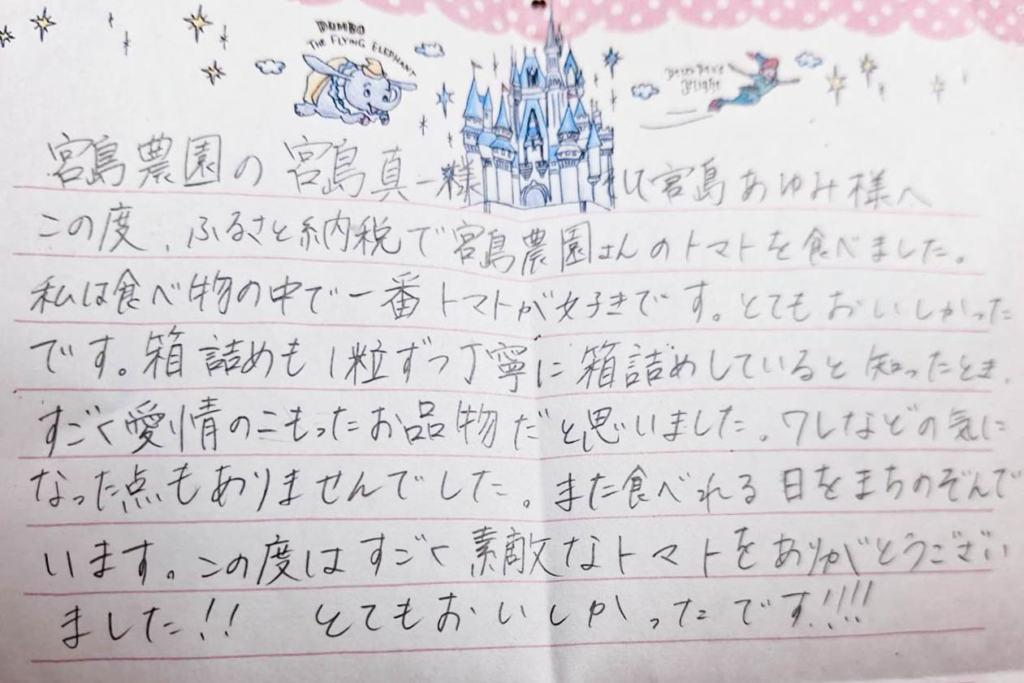 DUMBO
THE FLYING ELEPHANT
Peter Pan's
Flight
宮島農園の 宮島真一様 して宮島あゆみ様へ
この度、ふるさと納税で宮島農園さんのトマトを食べました。
私は食べ物の中で一番トマトが好きです。とてもおいしかった
です。箱詰めも1粒ずつ丁寧に箱詰めしていると知ったとき、
すごく愛情のこもったお品物だと思いました。ワレなどの気に
なった点もありませんでした。また食べれる日をまちのぞんで
います。この度はすごく素敵なトマトをありがとうござい
ました!! とてもおいしかったです!!!!